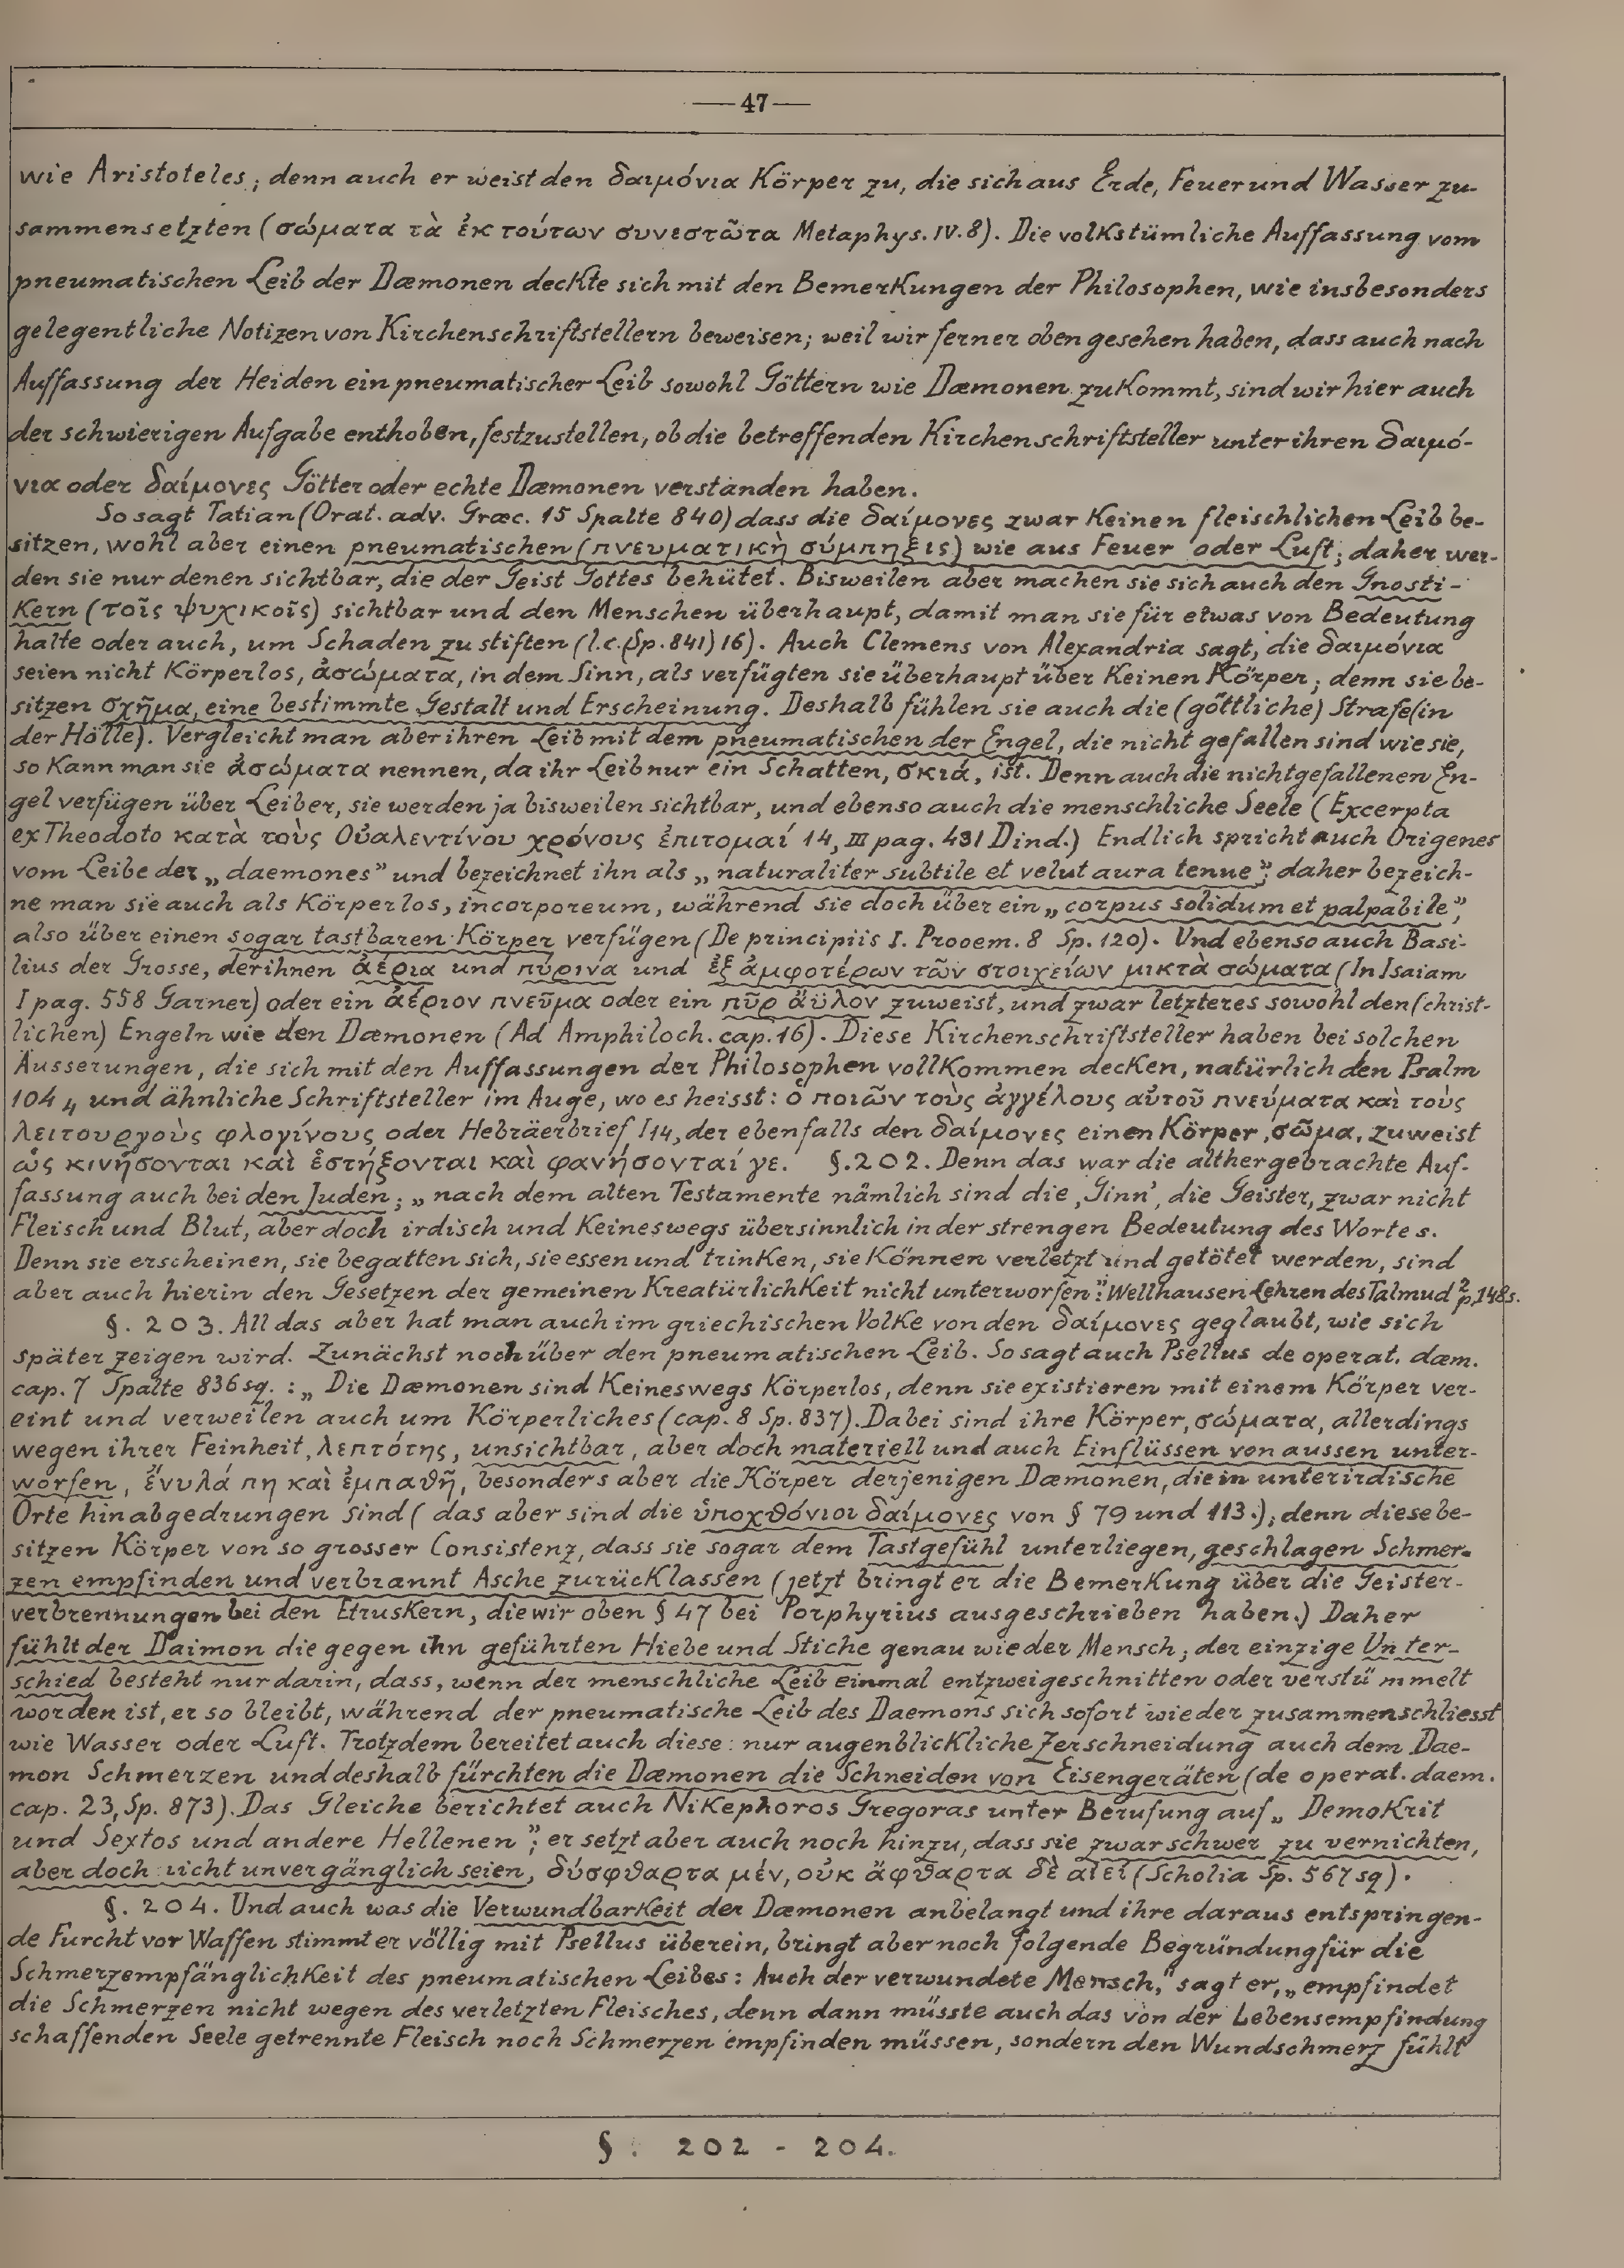 —47—
wie Aristoteles; denn auch er weist den δαιμόνια Körper zu, die sich aus Erde, Feuer und Wasser zu-
sammensetzten (σώματα τὰ ἐκ τούτων συνεστῶτα Metaphys. IV. 8). Die volkstümliche Auffassung vom
pneumatischen Leib der Dæmonen deckte sich mit den Bemerkungen der Philosophen, wie insbesonders
gelegentliche Notizen von Kirchenschriftstellern beweisen; weil wir ferner oben gesehen haben, dass auch nach
Auffassung der Heiden ein pneumatischer Leib sowohl Göttern wie Dæmonen zukommt, sind wir hier auch
der schwierigen Aufgabe enthoben, festzustellen, ob die betreffenden Kirchenschriftsteller unter ihren δαιμό-
νια oder δαίμονες Götter oder echte Dæmonen verstanden haben.
So sagt Tatian (Orat. adv. Græc. 15 Spalte 840) dass die δαίμονες zwar keinen fleischlichen Leib be-
sitzen, wohl aber einen pneumatischen (πνευματικὴ σύμπηξις) wie aus Feuer oder Luft; daher wer-
den sie nur denen sichtbar, die der Geist Gottes behütet. Bisweilen aber machen sie sich auch den Gnosti-
kern (τοῖς ψυχικοῖς) sichtbar und den Menschen überhaupt, damit man sie für etwas von Bedeutung
halte oder auch, um Schaden zu stiften (l.c. Sp. 841) 16). Auch Clemens von Alexandria sagt, die δαιμόνια
seien nicht körperlos, ἀσώματα, in dem Sinn, als verfügten sie überhaupt über keinen Körper; denn sie be-
sitzen σχῆμα, eine bestimmte Gestalt und Erscheinung. Deshalb fühlen sie auch die (göttliche) Strafe (in
der Hölle). Vergleicht man aber ihren Leib mit dem pneumatischen der Engel, die nicht gefallen sind wie sie,
so kann man sie ἀσώματα nennen, da ihr Leib nur ein Schatten, σκιά, ist. Denn auch die nichtgefallenen En-
gel verfügen über Leiber, sie werden ja bisweilen sichtbar, und ebenso auch die menschliche Seele (Excerpta
ex Theodoto κατὰ τοὺς Οὐαλεντίνου χρόνους ἐπιτομαί 14, III pag. 431 Dind.) Endlich spricht auch Origenes
vom Leibe der „daemones” und bezeichnet ihn als „naturaliter subtile et velut aura tenue”; daher bezeich-
ne man sie auch als körperlos, incorporeum, während sie doch über ein „corpus solidum et palpabile”,
also über einen sogar tastbaren Körper verfügen (De principiis I. Prooem. 8 Sp. 120). Und ebenso auch Basi-
lius der Grosse, der ihnen ἀέρια und πύρινα und ἐξ ἀμφοτέρων τῶν στοιχείων μικτὰ σώματα (In Isaiam
I pag. 558 Garner) oder ein ἀέριον πνεῦμα oder ein πῦρ ἄϋλον zuweist, und zwar letzteres sowohl den (christ-
lichen) Engeln wie den Dæmonen (Ad Amphiloch. cap. 16). Diese Kirchenschriftsteller haben bei solchen
Äusserungen, die sich mit den Auffassungen der Philosophen vollkommen decken, natürlich den Psalm
104 4 und ähnliche Schriftsteller im Auge, wo es heisst: ὁ ποιῶν τοὺς ἀγγέλους αὐτοῦ πνεύματα καὶ τοὺς
λειτουργοὺς φλογίνους oder Hebräerbrief I 14, der ebenfalls den δαίμονες einen Körper, σῶμα, zuweist
ὧς κινήσονται καὶ ἑστήξονται καὶ φανήσονταί γε. §. 202. Denn das war die althergebrachte Auf-
fassung auch bei den Juden; „nach dem alten Testamente nämlich sind die ‚Ginn’, die Geister, zwar nicht
Fleisch und Blut, aber doch irdisch und keineswegs übersinnlich in der strengen Bedeutung des Wortes.
Denn sie erscheinen, sie begatten sich, sie essen und trinken, sie können verletzt und getötet werden, sind
aber auch hierin den Gesetzen der gemeinen Kreatürlichkeit nicht unterworfen”: Wellhausen Lehren des Talmud ² p. 148s.
§. 203. All das aber hat man auch im griechischen Volke von den δαίμονες geglaubt, wie sich
später zeigen wird. Zunächst noch über den pneumatischen Leib. So sagt auch Psellus de operat. dæm.
cap. 7 Spalte 836 sq. : „Die Dæmonen sind keineswegs körperlos, denn sie existieren mit einem Körper ver-
eint und verweilen auch um Körperliches (cap. 8 Sp. 837). Dabei sind ihre Körper, σώματα, allerdings
wegen ihrer Feinheit, λεπτότης, unsichtbar, aber doch materiell und auch Einflüssen von aussen unter-
worfen, ἔνυλά πη καὶ ἐμπαθῆ, besonders aber die Körper derjenigen Dæmonen, die in unterirdische
Orte hinabgedrungen sind (das aber sind die ὑποχθόνιοι δαίμονες von § 79 und 113.); denn diese be-
sitzen Körper von so grosser Consistenz, dass sie sogar dem Tastgefühl unterliegen, geschlagen Schmer-
zen empfinden und verbrannt Asche zurücklassen (jetzt bringt er die Bemerkung über die Geister-
verbrennungen bei den Etruskern, die wir oben § 47 bei Porphyrius ausgeschrieben haben.) Daher
fühlt der Daimon die gegen ihn geführten Hiebe und Stiche genau wie der Mensch; der einzige Unter-
schied besteht nur darin, dass, wenn der menschliche Leib einmal entzweigeschnitten oder verstümmelt
worden ist, er so bleibt, während der pneumatische Leib des Daemons sich sofort wieder zusammenschliesst
wie Wasser oder Luft. Trotzdem bereitet auch diese nur augenblickliche Zerschneidung auch dem Dae-
mon Schmerzen und deshalb fürchten die Dæmonen die Schneiden von Eisengeräten (de operat. daem.
cap. 23, Sp. 873). Das Gleiche berichtet auch Nikephoros Gregoras unter Berufung auf „Demokrit
und Sextos und andere Hellenen”; er setzt aber auch noch hinzu, dass sie zwar schwer zu vernichten,
aber doch nicht unvergänglich seien, δύσφθαρτα μέν, οὐκ ἄφθαρτα δὲ αἰεί (Scholia Sp. 567 sq).
§. 204. Und auch was die Verwundbarkeit der Dæmonen anbelangt und ihre daraus entspringen-
de Furcht vor Waffen stimmt er völlig mit Psellus überein, bringt aber noch folgende Begründung für die
Schmerzempfänglichkeit des pneumatischen Leibes: Auch der verwundete Mensch,” sagt er, „empfindet
die Schmerzen nicht wegen des verletzten Fleisches, denn dann müsste auch das von der Lebensempfindung
schaffenden Seele getrennte Fleisch noch Schmerzen empfinden müssen, sondern den Wundschmerz fühlt
§. 202 - 204.